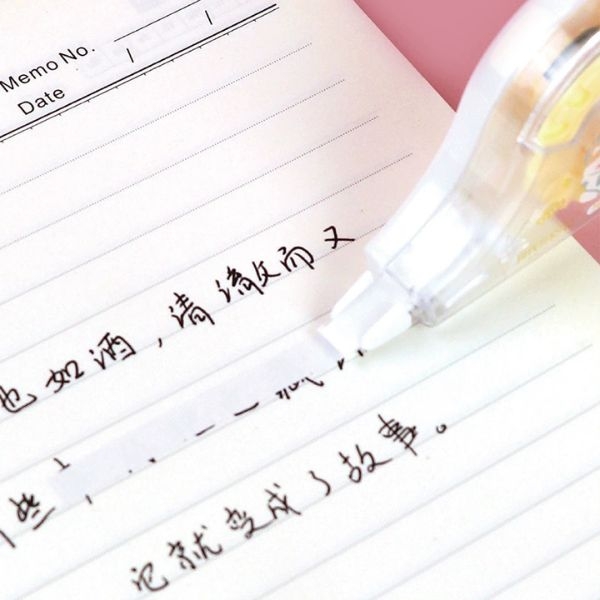 Memo No.
Date / /
也如酒，清澈而又
些
记就变成了故事。